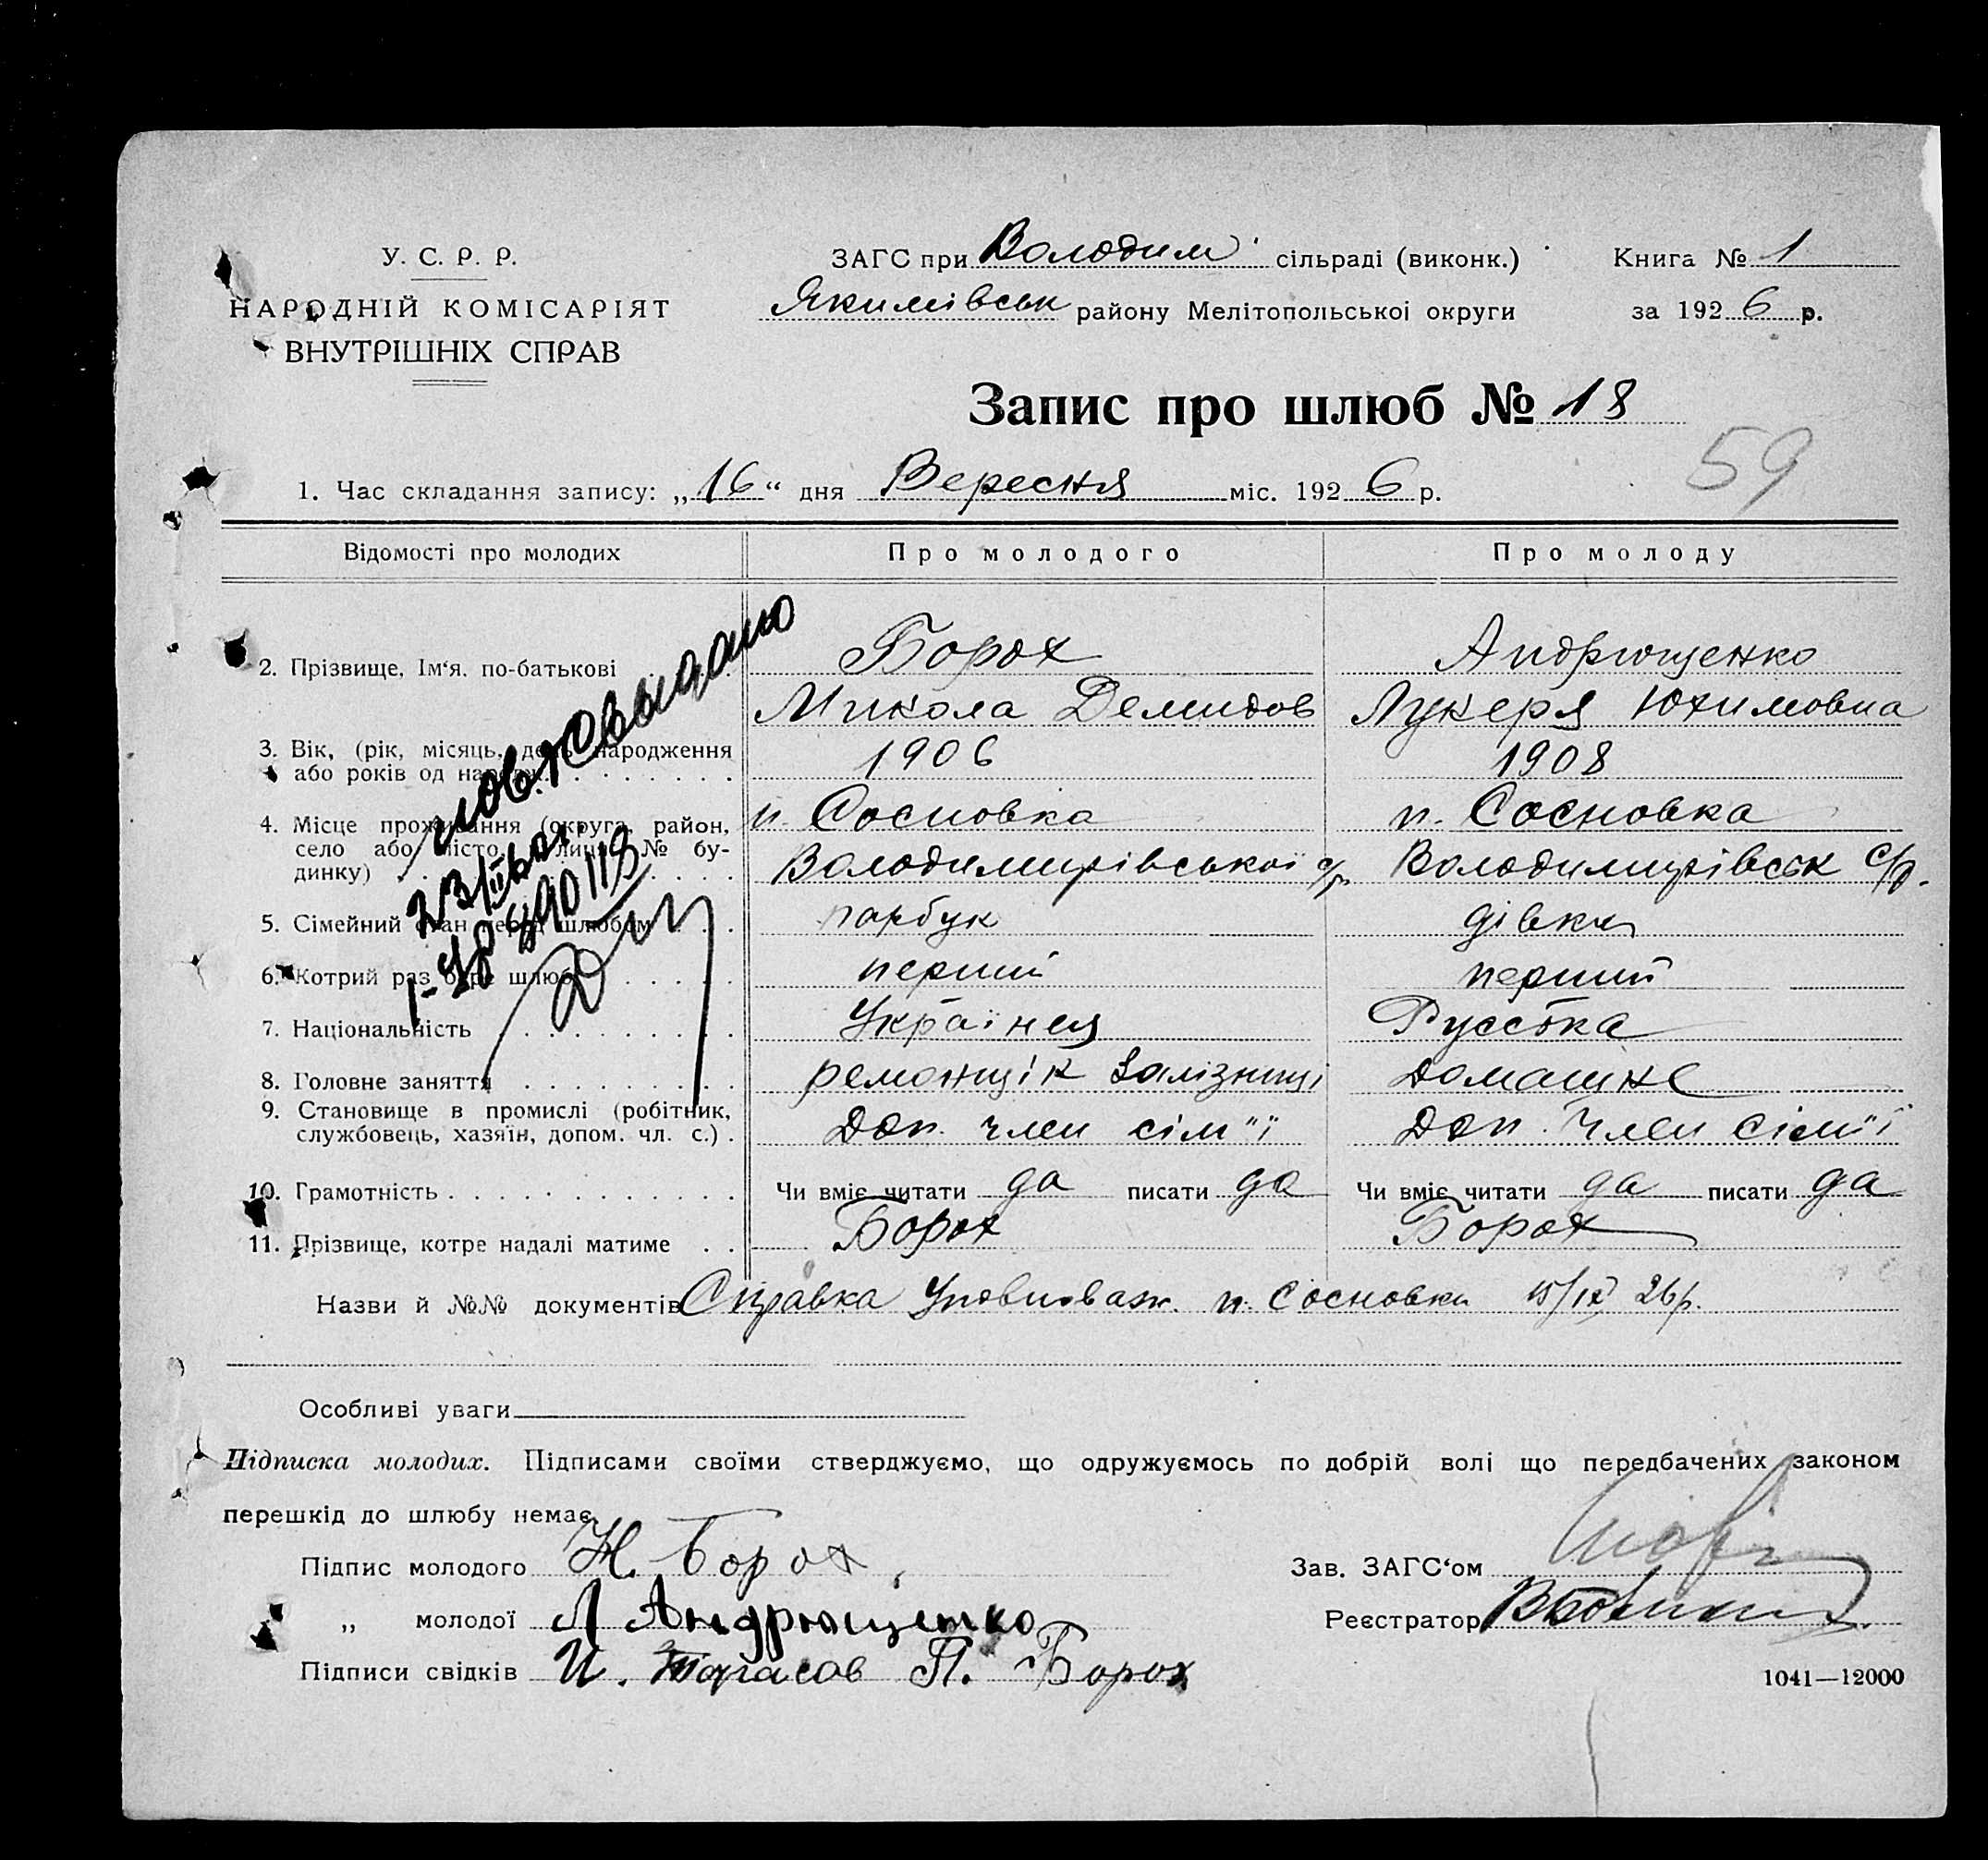 У. С. Р. Р.
НАРОДНІЙ КОМІСАРІЯТ
ВНУТРІШНІХ СПРАВ
ЗАГС при Володим сільраді (виконк.)
Якимівськ району Мелітопольської округи
Книга № 1
за 1926 р.
Запис про шлюб № 18
59
1. Час складання запису: „16“ дня Вересня міс. 1926 р.
Відомості про молодих Про молодого Про молоду
2. Прізвище, Ім‘я, по-батькові Борох Андрющенко
Микола Демидов Лукеря Юхимовна
3. Вік, (рік, місяць, день народження 1906 1908
або років од народж.)
4. Місце проживання (округа, район, п. Сосновка п. Сосновка
село або місто, вулиця, № бу-
динку) Володимирівської с/р. Володимирівськ с/р.
5. Сімейний стан перед шлюбом парубок дівка
6. Котрий раз бере шлюб перший перший
7. Національність Українец Русстка
8. Головне заняття ремонщік Залізниці домашнє
9. Становище в промислі (робітник,
службовець, хазяїн, допом. чл. с.) Доп. член сім"ї Доп. член сім"ї
10. Грамотність Чи вміє читати да писати да Чи вміє читати да писати да
11. Прізвище, котре надалі матиме Борох Борох
Назви й №№ документів Справка Уповноваж. п. Сосновки 15/IX 26р.
Особливі уваги
Підписка молодих. Підписами своїми стверджуємо, що одружуємось по добрій волі що передбачених законом
перешкід до шлюбу немає.
Підпис молодого Н. Борох
„ молодої Л Андрющенко
Підписи свідків И. Тарасов П. Борох
Зав. ЗАГС‘ом
Реєстратор
1041—12000